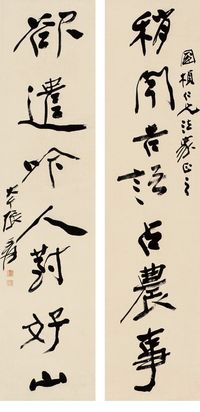 稍闻吉语占農事
國楨仁兄法家正之
欲遣吟人對好山
大千張爰